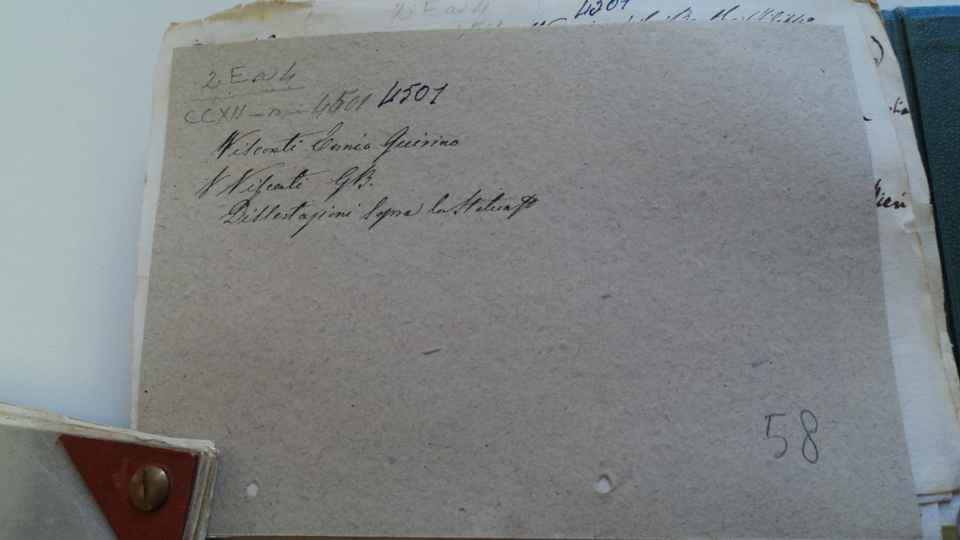 4501
2 E a 4
CCXII 4501 4501
Visconti Ennio Quirino
V Visconti GB.
Dissertazioni Sopra la Statua
58